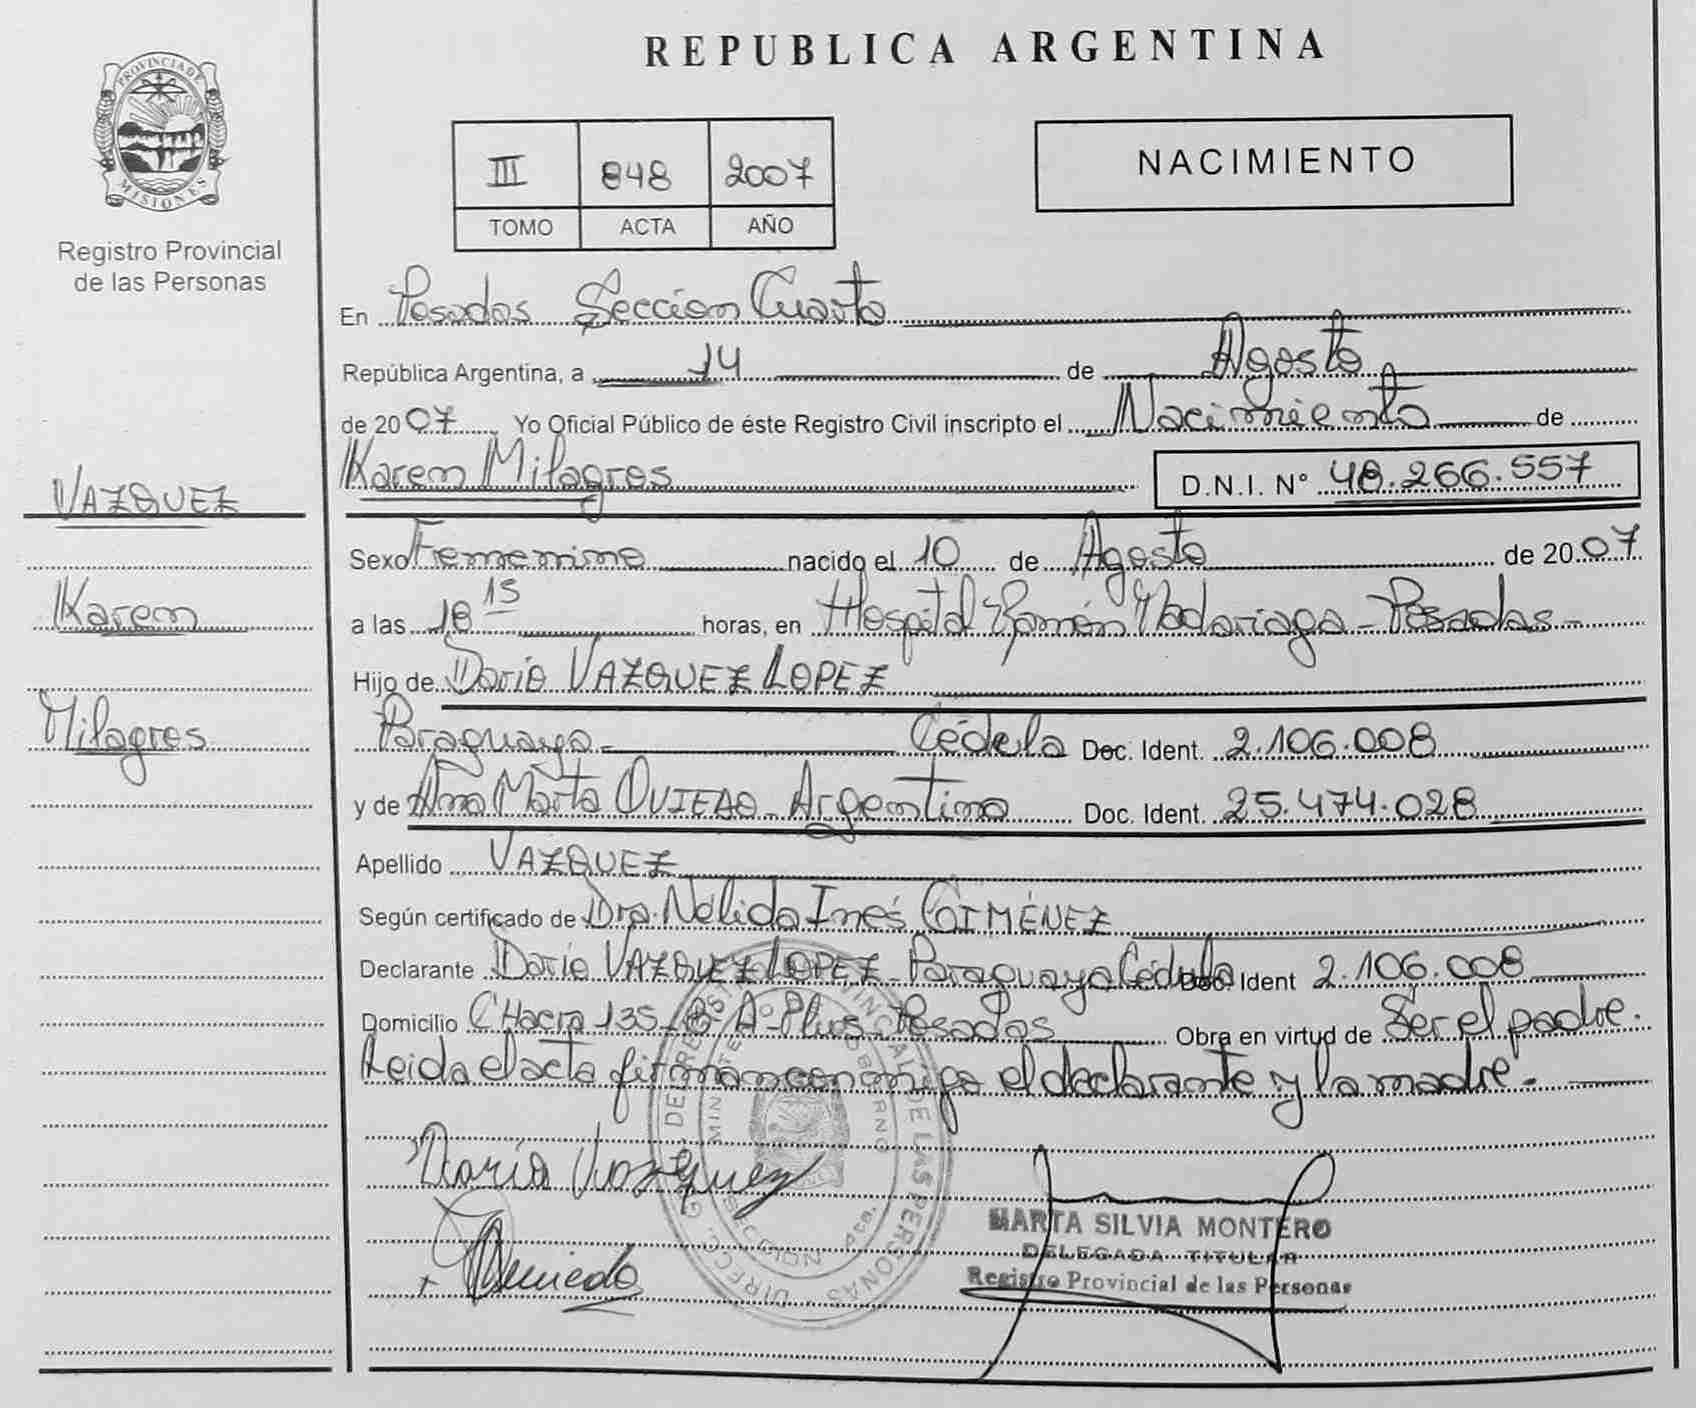 REPUBLICA ARGENTINA
PROVINCIA DE
MISIONES
Registro Provincial
de las Personas
III 848 2007
TOMO ACTA AÑO
NACIMIENTO
En Posadas Sección Cuarta
República Argentina, a 14 de Agosto
de 2007 Yo Oficial Público de éste Registro Civil inscripto el Nacimiento de
Karen Milagros D.N.I. Nº 48.266.557
VAZQUEZ
Sexo Femenino nacido el 10 de Agosto de 2007
Karen
a las 18 15 horas, en Hospital Ramón Madariaga - Posadas -
Hijo de Darío VAZQUEZ LOPEZ
Milagros
Paraguaya - Cédula Doc. Ident. 2.106.008
y de Ana Marta OVIEDO - Argentina Doc. Ident. 25.474.028
Apellido VAZQUEZ
Según certificado de Dra. Nélida Inés GIMÉNEZ
Declarante Darío VAZQUEZ LOPEZ - Paraguaya Cédula Doc. Ident 2.106.008
Domicilio CHacra 135 - A - Posadas Obra en virtud de Ser el padre.
Leida el acta firman conmigo el declarante y la madre.
Darío Vazquez
MARTA SILVIA MONTERO
DELEGADA TITULAR
Registro Provincial de las Personas